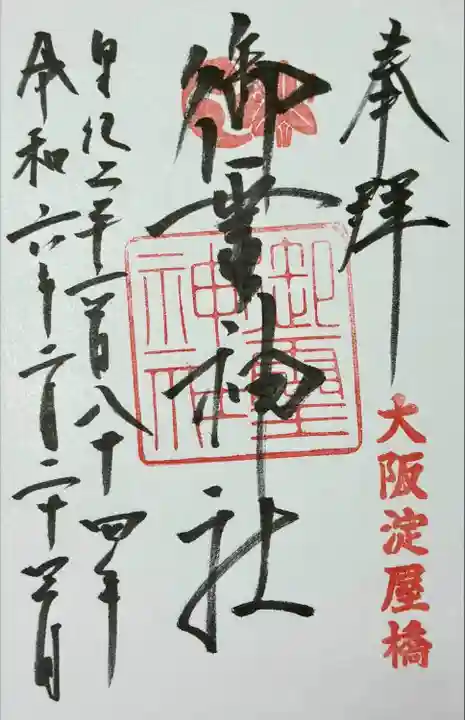 奉拝
大阪淀屋橋
御霊神社
御靈神社
皇紀二千六百八十四年
令和六年二月二十三日